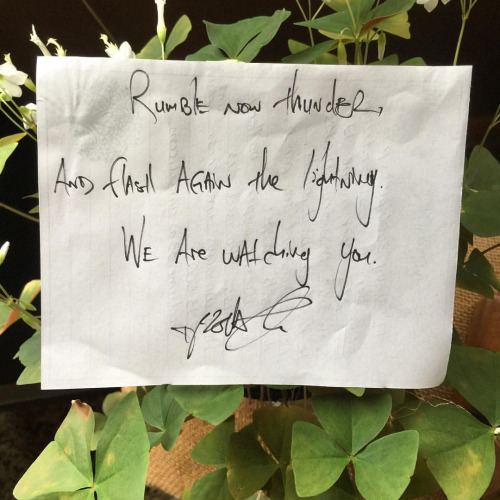 Rumble now thunder,
And flash again the lightning.
We are watching you.